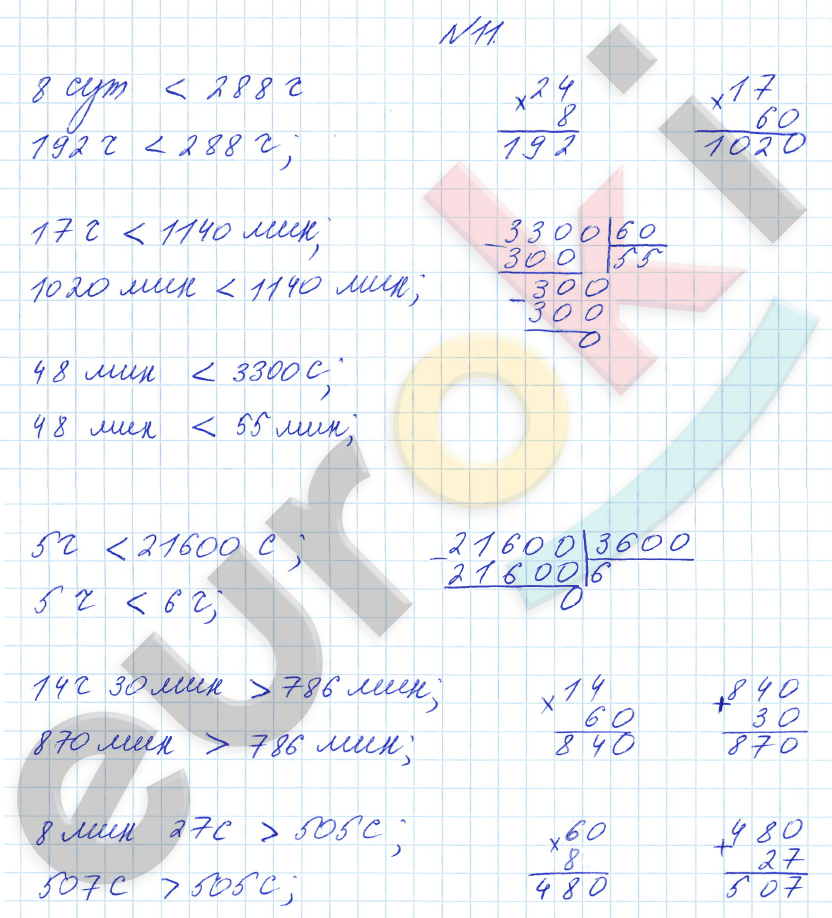 №11.
8 сут < 288 ч
192 ч < 288 ч;
× 24
8
192
× 17
60
1020
17 ч < 1140 мин;
1020 мин < 1140 мин;
− 3300 | 60
300 | 55
− 300
300
0
48 мин < 3300 с;
48 мин < 55 мин;
5 ч < 21600 с;
5 ч < 6 ч;
− 21600 | 3600
21600 | 6
0
14 ч 30 мин > 786 мин;
870 мин > 786 мин;
× 14
60
840
+ 840
30
870
8 мин 27 с > 505 с;
507 с > 505 с;
× 60
8
480
+ 480
27
507
euroki